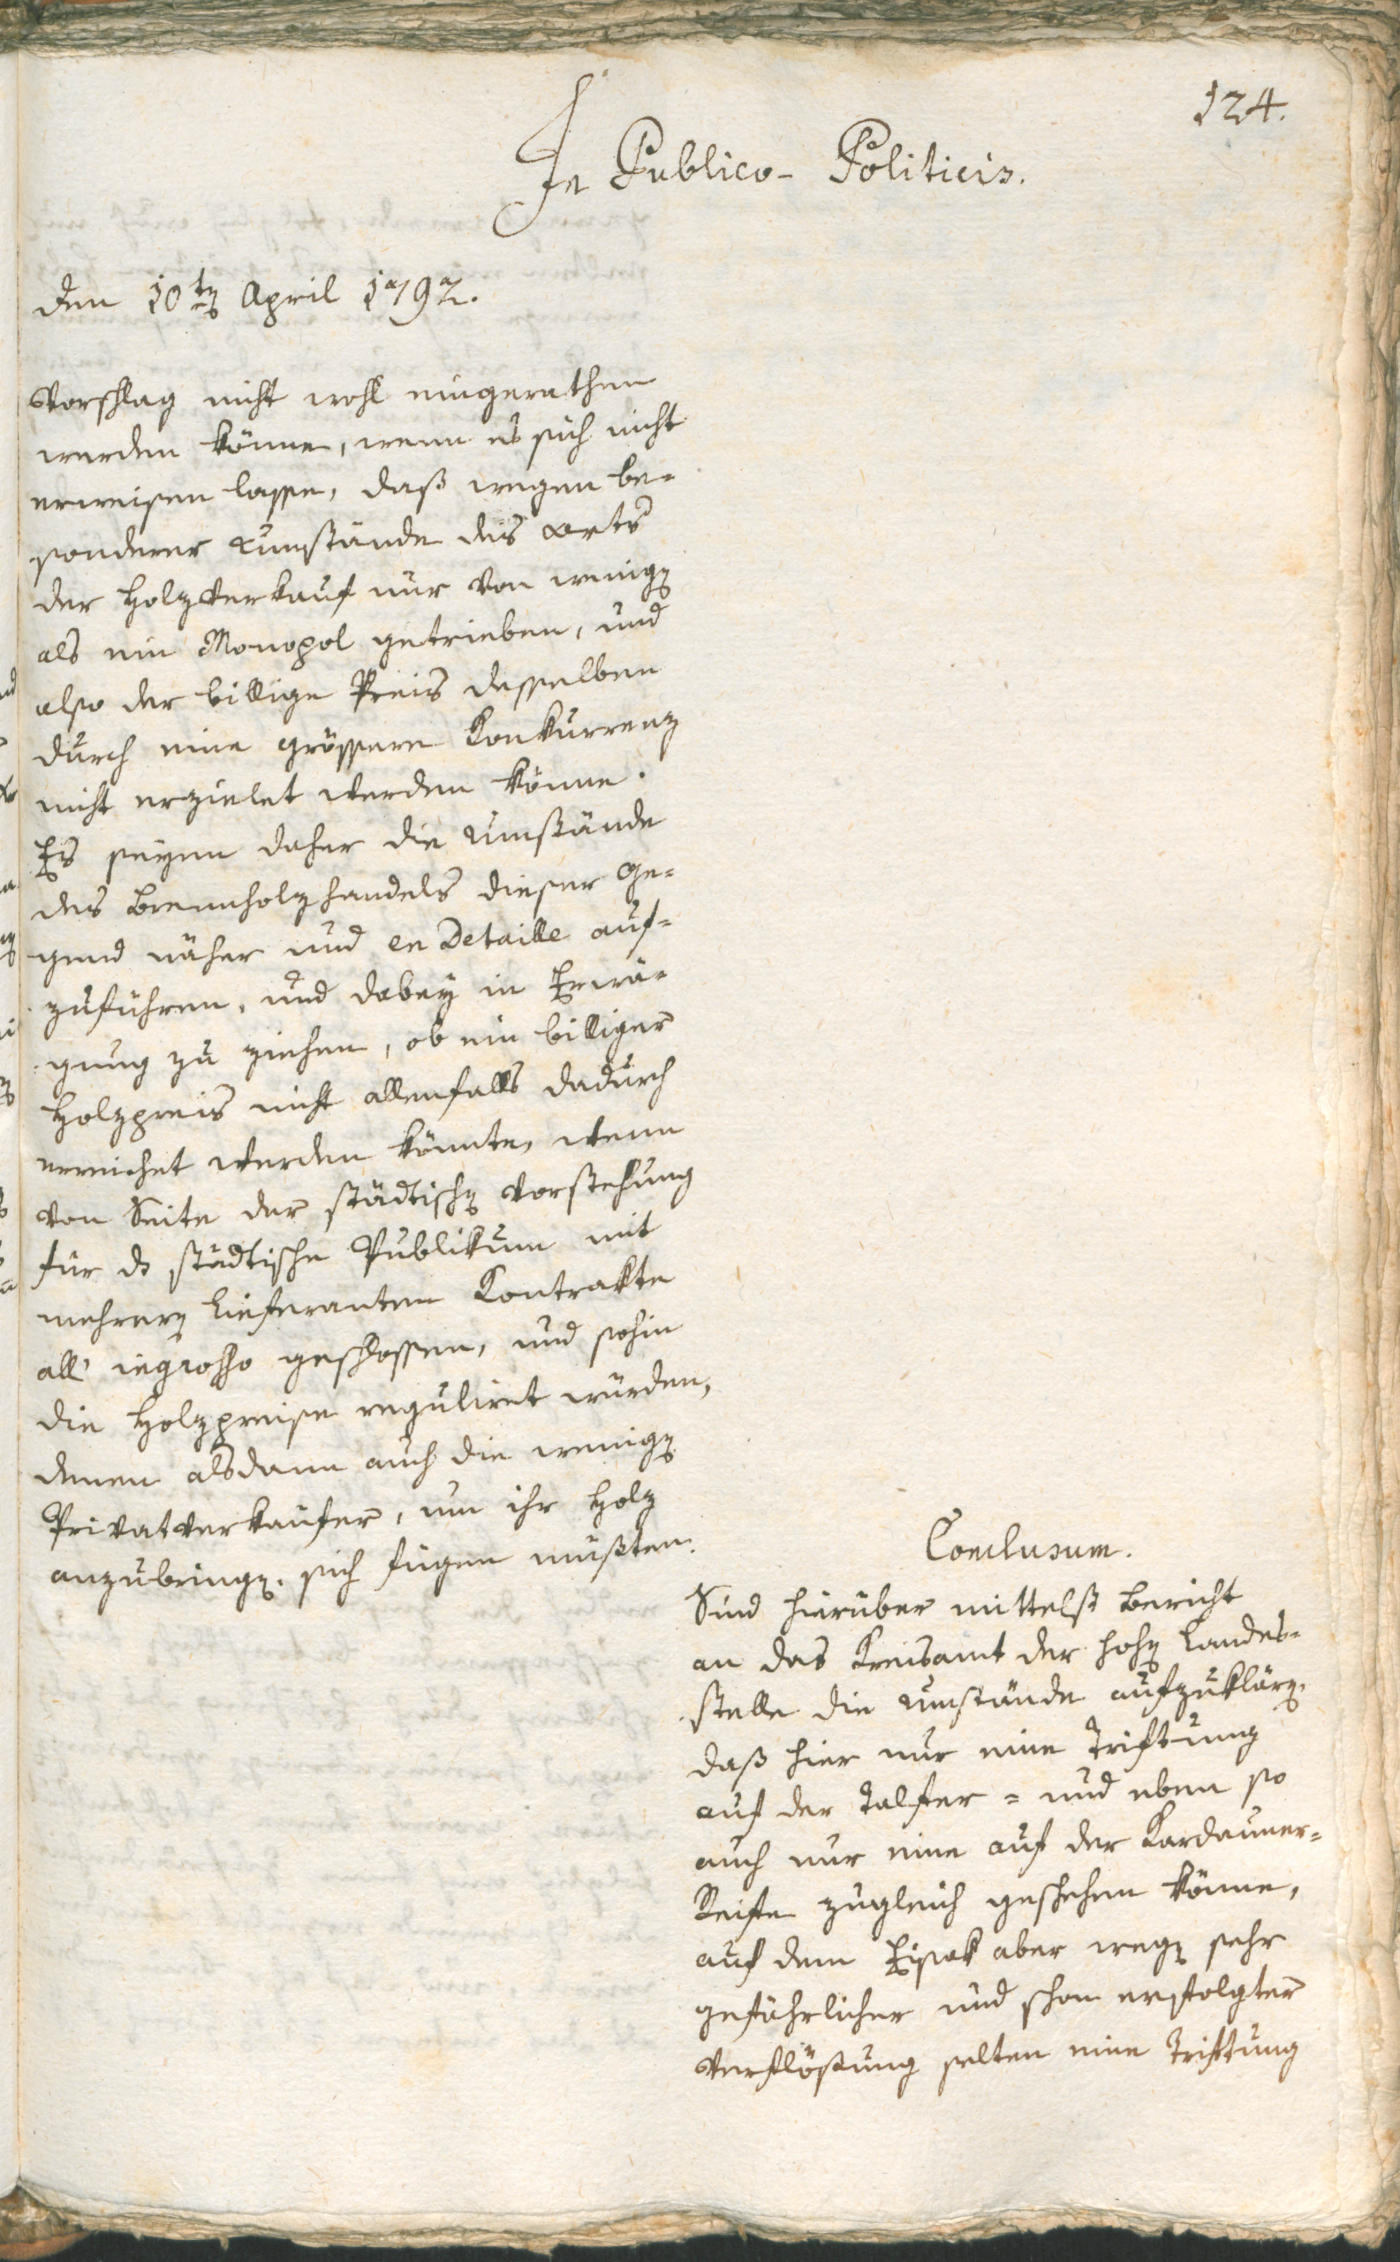 124.
In Publico-Politicis.
den 10ten April 1792.
Vorschlag nicht wohl eingerathen
werden könne, wenn es sich nicht
erweisen lasse, daß wegen be-
sonderer Umstände des Orts
der Holzverkauf nur von wenigen
als ein Monopol getrieben, und
also der billige Preis desselben
durch eine grössere Konkurrenz
nicht erzielet werden könne.
Es seyen daher die Umstände
des Brennholzhandels dieser Ge-
gend näher und en Detaille auf-
zuführen, und dabey in Erwä-
gung zu ziehen, ob ein billiger
Holzpreis nicht allenfalls dadurch
erreichet werden könnte, wenn
von Seite der städtischen Vorstehung
für ds städtische Publikum mit
mehreren Lieferanten Kontrakte
all' ingrosso geschlossen, und sohin
die Holzpreise reguliret würden,
denen alsdann auch die wenigen
Privatverkäufer, um ihr Holz
anzubringen, sich fügen müßten.
Conclusum.
Sind hierüber mittelst Bericht
an das Kreisamt der hohen Landes-
stelle die Umstände aufzuklären,
daß hier nur eine Triftung
auf der Talfer- und eben so
auch nur eine auf der Kardauner-
Reiste zugleich geschehen könne,
auf dem Eisak aber wegen sehr
gefährlicher und schon erfolgter
Verflößung selten eine Triftung